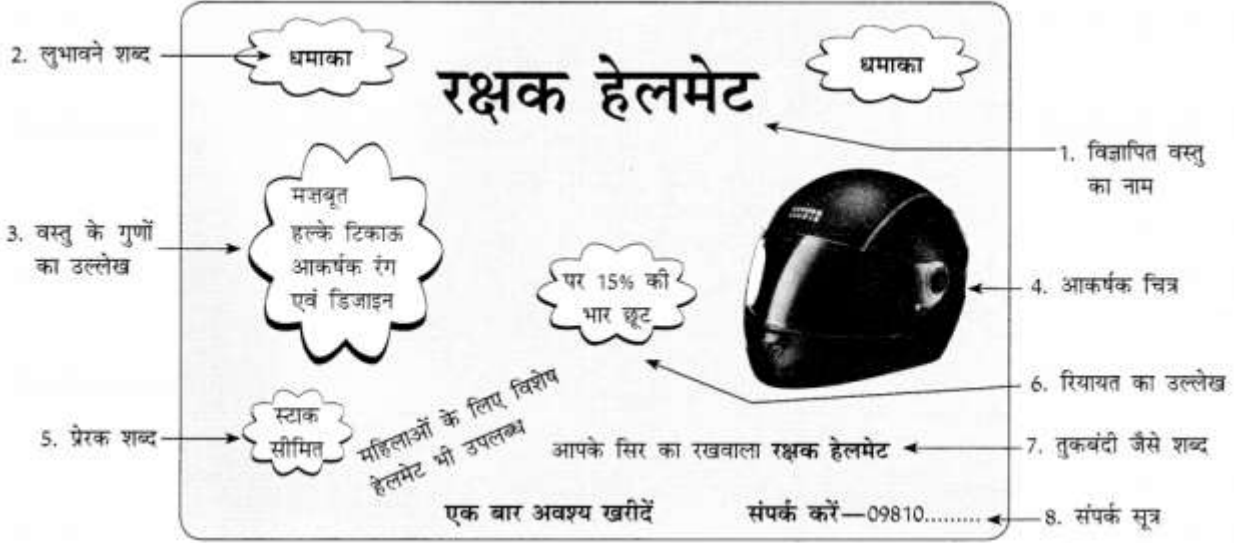 2. लुभावने शब्द
धमाका
रक्षक हेलमेट
धमाका
1. विज्ञापित वस्तु
का नाम
3. वस्तु के गुणों
का उल्लेख
मजबूत
हल्के टिकाऊ
आकर्षक रंग
एवं डिजाइन
पर 15% की
भार छूट
4. आकर्षक चित्र
6. रियायत का उल्लेख
5. प्रेरक शब्द
स्टाक
सीमित
महिलाओं के लिए विशेष
हेलमेट भी उपलब्ध
आपके सिर का रखवाला रक्षक हेलमेट
7. तुकबंदी जैसे शब्द
एक बार अवश्य खरीदें
संपर्क करें—09810.........
8. संपर्क सूत्र